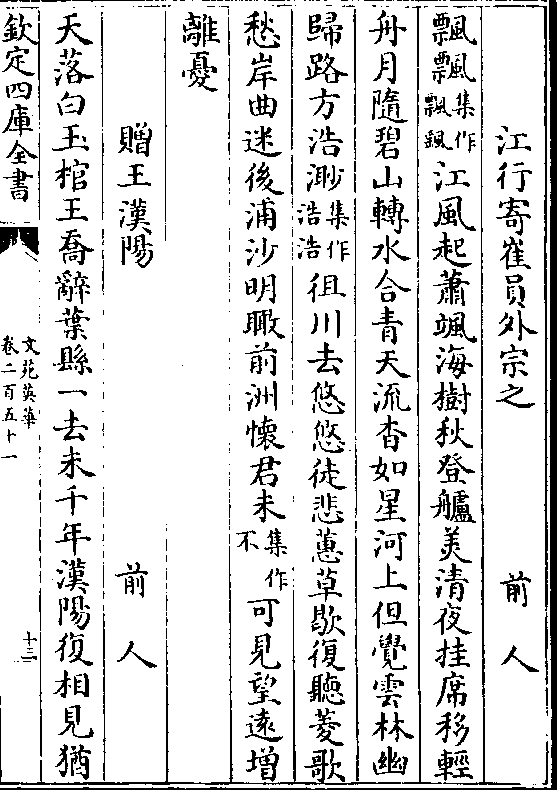 江行寄崔員外宗之　前人
飄飄集作飄飄江風起蕭颯海樹秋登艫羙清夜挂席移輕
舟月隨碧山轉水合青天流杳如星河上但覺雲林幽
歸路方浩渺集作浩浩徂川去悠悠徒悲蕙草歇復聽菱歌
愁岸曲迷後浦沙明瞰前洲懷君未集作不可見望遠增
離憂
贈王漢陽　前人
天落白玉棺王喬辭葉縣一去未千年漢陽復相見猶
欽定四庫全書
文苑英華
卷二百五十一
十三